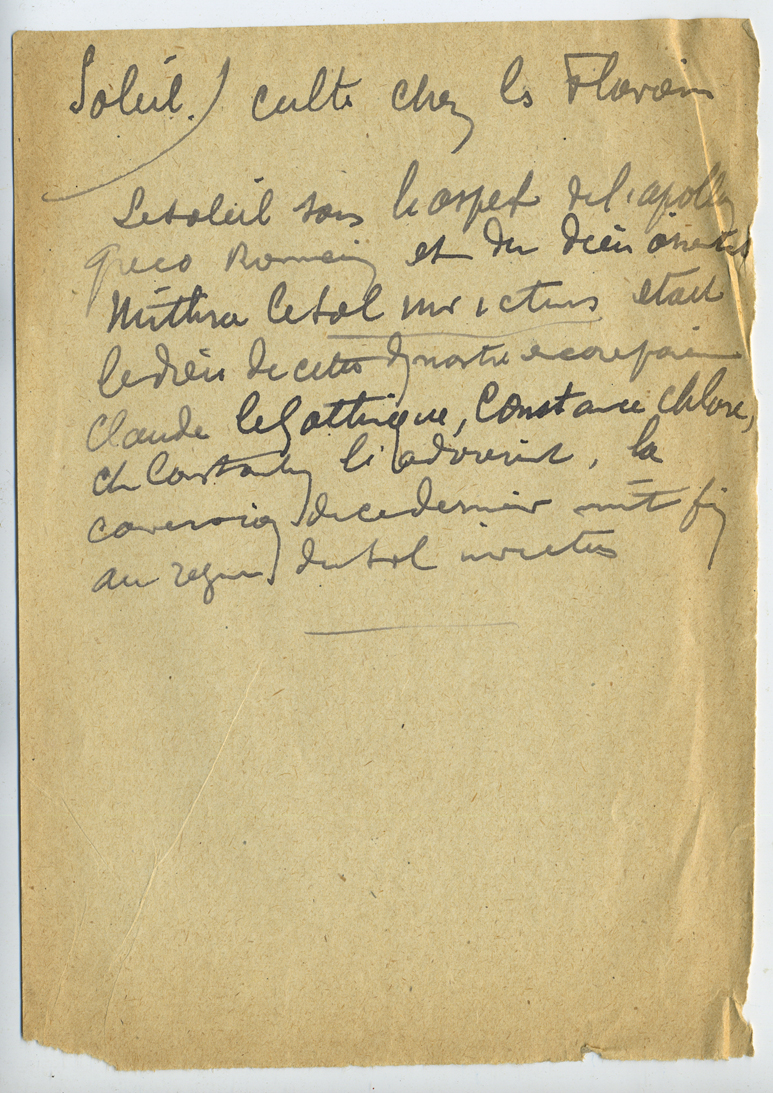 Soleil) culte chez les Flaviens
Le soleil sous l'aspect de l'apollon
greco Romain et du dieu oriental
Mithra le sol invictus etait
le dieu de cette dynastie encore païenne
Claude le gothique, Constance Chlore,
et Constantin l'adorerent, la
conversion de ce dernier mit fin
au regne du sol invictus